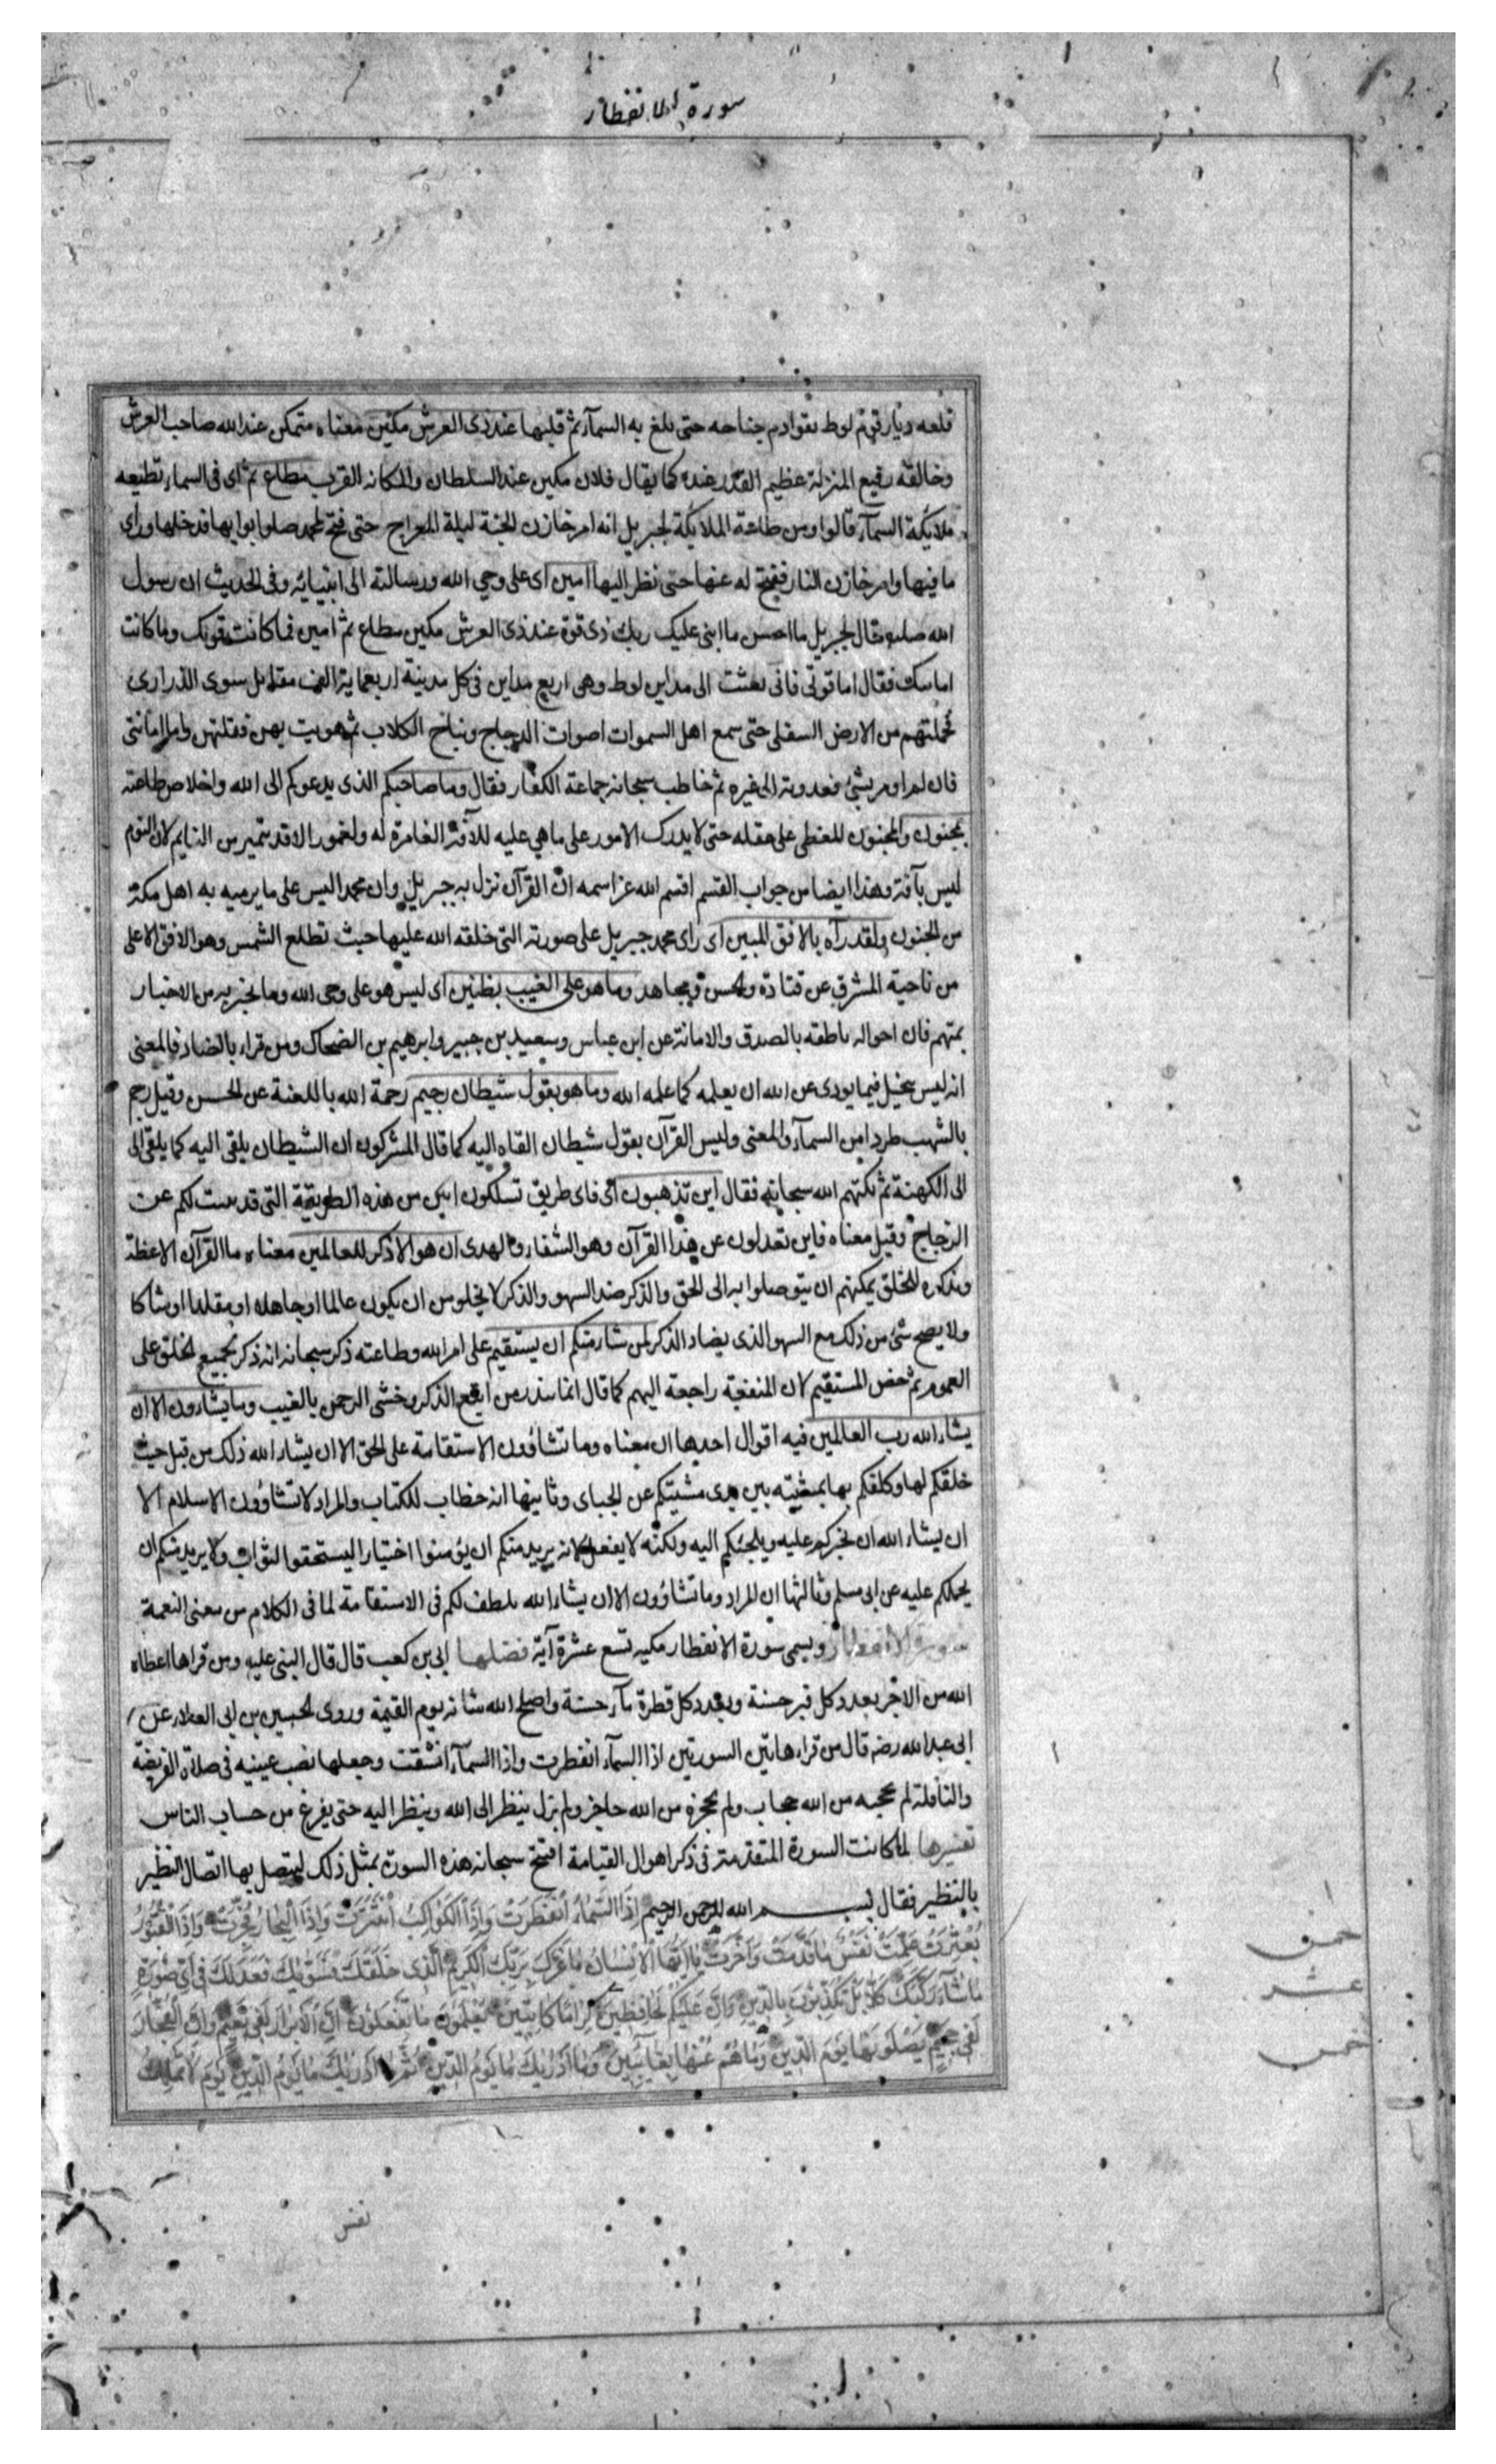 سورة الانفطار
قلعه ديار قوم لوط بقوادم جناحه حتى بلغ به السمآء ثم قلبها عند ذى العرش مكين معناه متمكن عند الله صاحب العرش
وخالقه رفيع المنزلة عظيم القدر عنده كما يقال فلان مكين عند السلطان والمكانه القرب مطاع ثم اى فى السماء تطيعه
ملايكة السمآء قالوا ومن طاعة الملايكة لجبريل انه امر خازن الجنة ليلة المعراج حتى فتح لمحمد صلى ابوابها فدخلها وراى
ما فيها وامر خازن النار ففتح له عنها حتى نظر اليها امين اى على وحي الله ورسالته الى انبيائه وفى الحديث ان رسول
الله صلى قال لجبريل ما احسن ما اثنى عليك ربك ذى قوة عند ذى العرش مكين مطاع ثم امين فما كانت قوتك وما كانت
امانتك فقال اما قوتى فانى بعثت الى مداين لوط وهى اربع مداين فى كل مدينة اربعماية الف مقاتل سوى الذرارى
فحملتهم من الارض السفلى حتى سمع اهل السموات اصوات الدجاج ونباح الكلاب ثم هويت بهن فقلبتهن واما امانتى
فان لم اومر بشئ فعدوته الى غيره ثم خاطب سبحانه جماعة الكفار فقال وما صاحبكم الذى يدعوكم الى الله واخلاص طاعته
بمجنون والمجنون المغطى على عقله حتى لا يدرك الامور على ما هي عليه للآفة الغامرة له ولغمور الافة يتميز من النايم لان النوم
ليس بآفة وهذا ايضا من جواب القسم اقسم الله عز اسمه ان القرآن نزل به جبريل وان محمدا ليس على ما يرميه به اهل مكة
من الجنون ولقد رآه بالافق المبين اى راى محمد جبريل على صورته التى خلقه الله عليها حيث تطلع الشمس وهو الافق الاعلى
من ناحية المشرق عن قتادة والحسن ومجاهد وما هو على الغيب بظنين اى ليس هو على وحى الله وما يخبر به من الاخبار
بمتهم فان احواله ناطقه بالصدق والامانة عن ابن عباس وسعيد بن جبير وابرهيم بن الضحاك ومن قراء بالضاد فالمعنى
انه ليس ببخيل فيما يودى عن الله ان يعلمه كما علمه الله وما هو بقول شيطان رجيم رحمة الله باللعنة عن الحسن وقيل رجم
بالشهب طردا من السمآء والمعنى وليس القرآن بقول شيطان القاه اليه كما قال المشركون ان الشيطان يلقى اليه كما يلقى الى
الى الكهنة ثم بكتهم الله سبحانه فقال اين تذهبون اى فاى طريق تسلكون ابين من هذه الطريقة التى قد بينت لكم عن
الزجاج وقيل معناه فاين تعدلون عن هذا القرآن وهو الشفاء والهدى ان هو الا ذكر للعالمين معناه ما القرآن الا عظة
وتذكره للخلق يمكنهم ان يتوصلوا به الى الحق والذكر ضد السهو والذكر لا يخلو من ان يكون عالما او جاهلا او مقلدا او شاكا
ولا يصح شئ من ذلك مع السهو الذى يضاد الذكر لمن شاء منكم ان يستقيم على امر الله وطاعته ذكر سبحانه انه ذكر لجميع الخلق على
العموم ثم خص المستقيم لان المنفعة راجعة اليهم كما قال انما تنذر من اتبع الذكر وخشى الرحمن بالغيب وما يشاءون الا ان
يشاء الله رب العالمين فيه اقوال احدها ان معناه وما تشاؤون الاستقامة على الحق الا ان يشاء الله ذلك من قبل حيث
خلقكم لها وكلفكم بها بمشيته بين يدى مشيتكم عن الجباى وثانيها انه خطاب للكتاب والمراد لا تشاؤون الاسلام الا
ان يشاء الله ان يجبركم عليه ويلجئكم اليه ولكنه لا يفعل لانه يريد منكم ان يؤمنوا اختيارا ليستحقوا الثواب ولا يريد منكم ان
يحملكم عليه عن ابى مسلم وثالثها ان المراد وما تشاؤون الا ان يشاء الله يلطف لكم فى الاستقامة لما فى الكلام من معنى النعمة
سورة الانفطار ويسمى سورة الانفطار مكيه تسع عشرة آية فضلها ابى بن كعب قال قال النبى عليه ومن قراها اعطاه
الله من الاجر بعدد كل قبر حسنة وبعدد كل قطرة مآء حسنة واصلح الله شانه يوم القيمة وروى الحسين بن ابى العلاء عن
ابى عبد الله رضه قال من قراء هاتين السورتين اذا السمآء انفطرت واذا السمآء انشقت وجعلها نصب عينيه فى صلاة الفريضة
والنافلة لم يحجبه من الله حجاب ولم يحجزه من الله حاجز ولم يزل ينظر الى الله وينظر اليه حتى يفرغ من حساب الناس
تفسيرها لما كانت السورة المتقدمة فى ذكر اهوال القيامة افتتح سبحانه هذه السورة بمثل ذلك ليتصل بها اتصال النظير
بالنظير فقال بسم الله الرحمن الرحيم اِذَا السَّمَاءُ انْفَطَرَتْ وَاِذَا الْكَوَاكِبُ انْتَثَرَتْ وَاِذَا الْبِحَارُ فُجِّرَتْ وَاِذَا الْقُبُورُ
بُعْثِرَتْ عَلِمَتْ نَفْسٌ مَا قَدَّمَتْ وَاَخَّرَتْ يَا اَيُّهَا الْاِنْسَانُ مَا غَرَّكَ بِرَبِّكَ الْكَرِيمِ الَّذِى خَلَقَكَ فَسَوّٰيكَ فَعَدَلَكَ فِى اَىِّ صُورَةٍ
مَا شَآءَ رَكَّبَكَ كَلَّا بَلْ تُكَذِّبُونَ بِالدِّينِ وَاِنَّ عَلَيْكُمْ لَحَافِظِينَ كِرَامًا كَاتِبِينَ يَعْلَمُونَ مَا تَفْعَلُونَ اِنَّ الْاَبْرَارَ لَفِى نَعِيمٍ وَاِنَّ الْفُجَّارَ
لَفِى جَحِيمٍ يَصْلَوْنَهَا يَوْمَ الدِّينِ وَمَا هُمْ عَنْهَا بِغَائِبِينَ وَمَا اَدْرٰيكَ مَا يَوْمُ الدِّينِ ثُمَّ مَا اَدْرٰيكَ مَا يَوْمُ الدِّينِ يَوْمَ لَا تَمْلِكُ
خمس
عشر
خمس
نفس